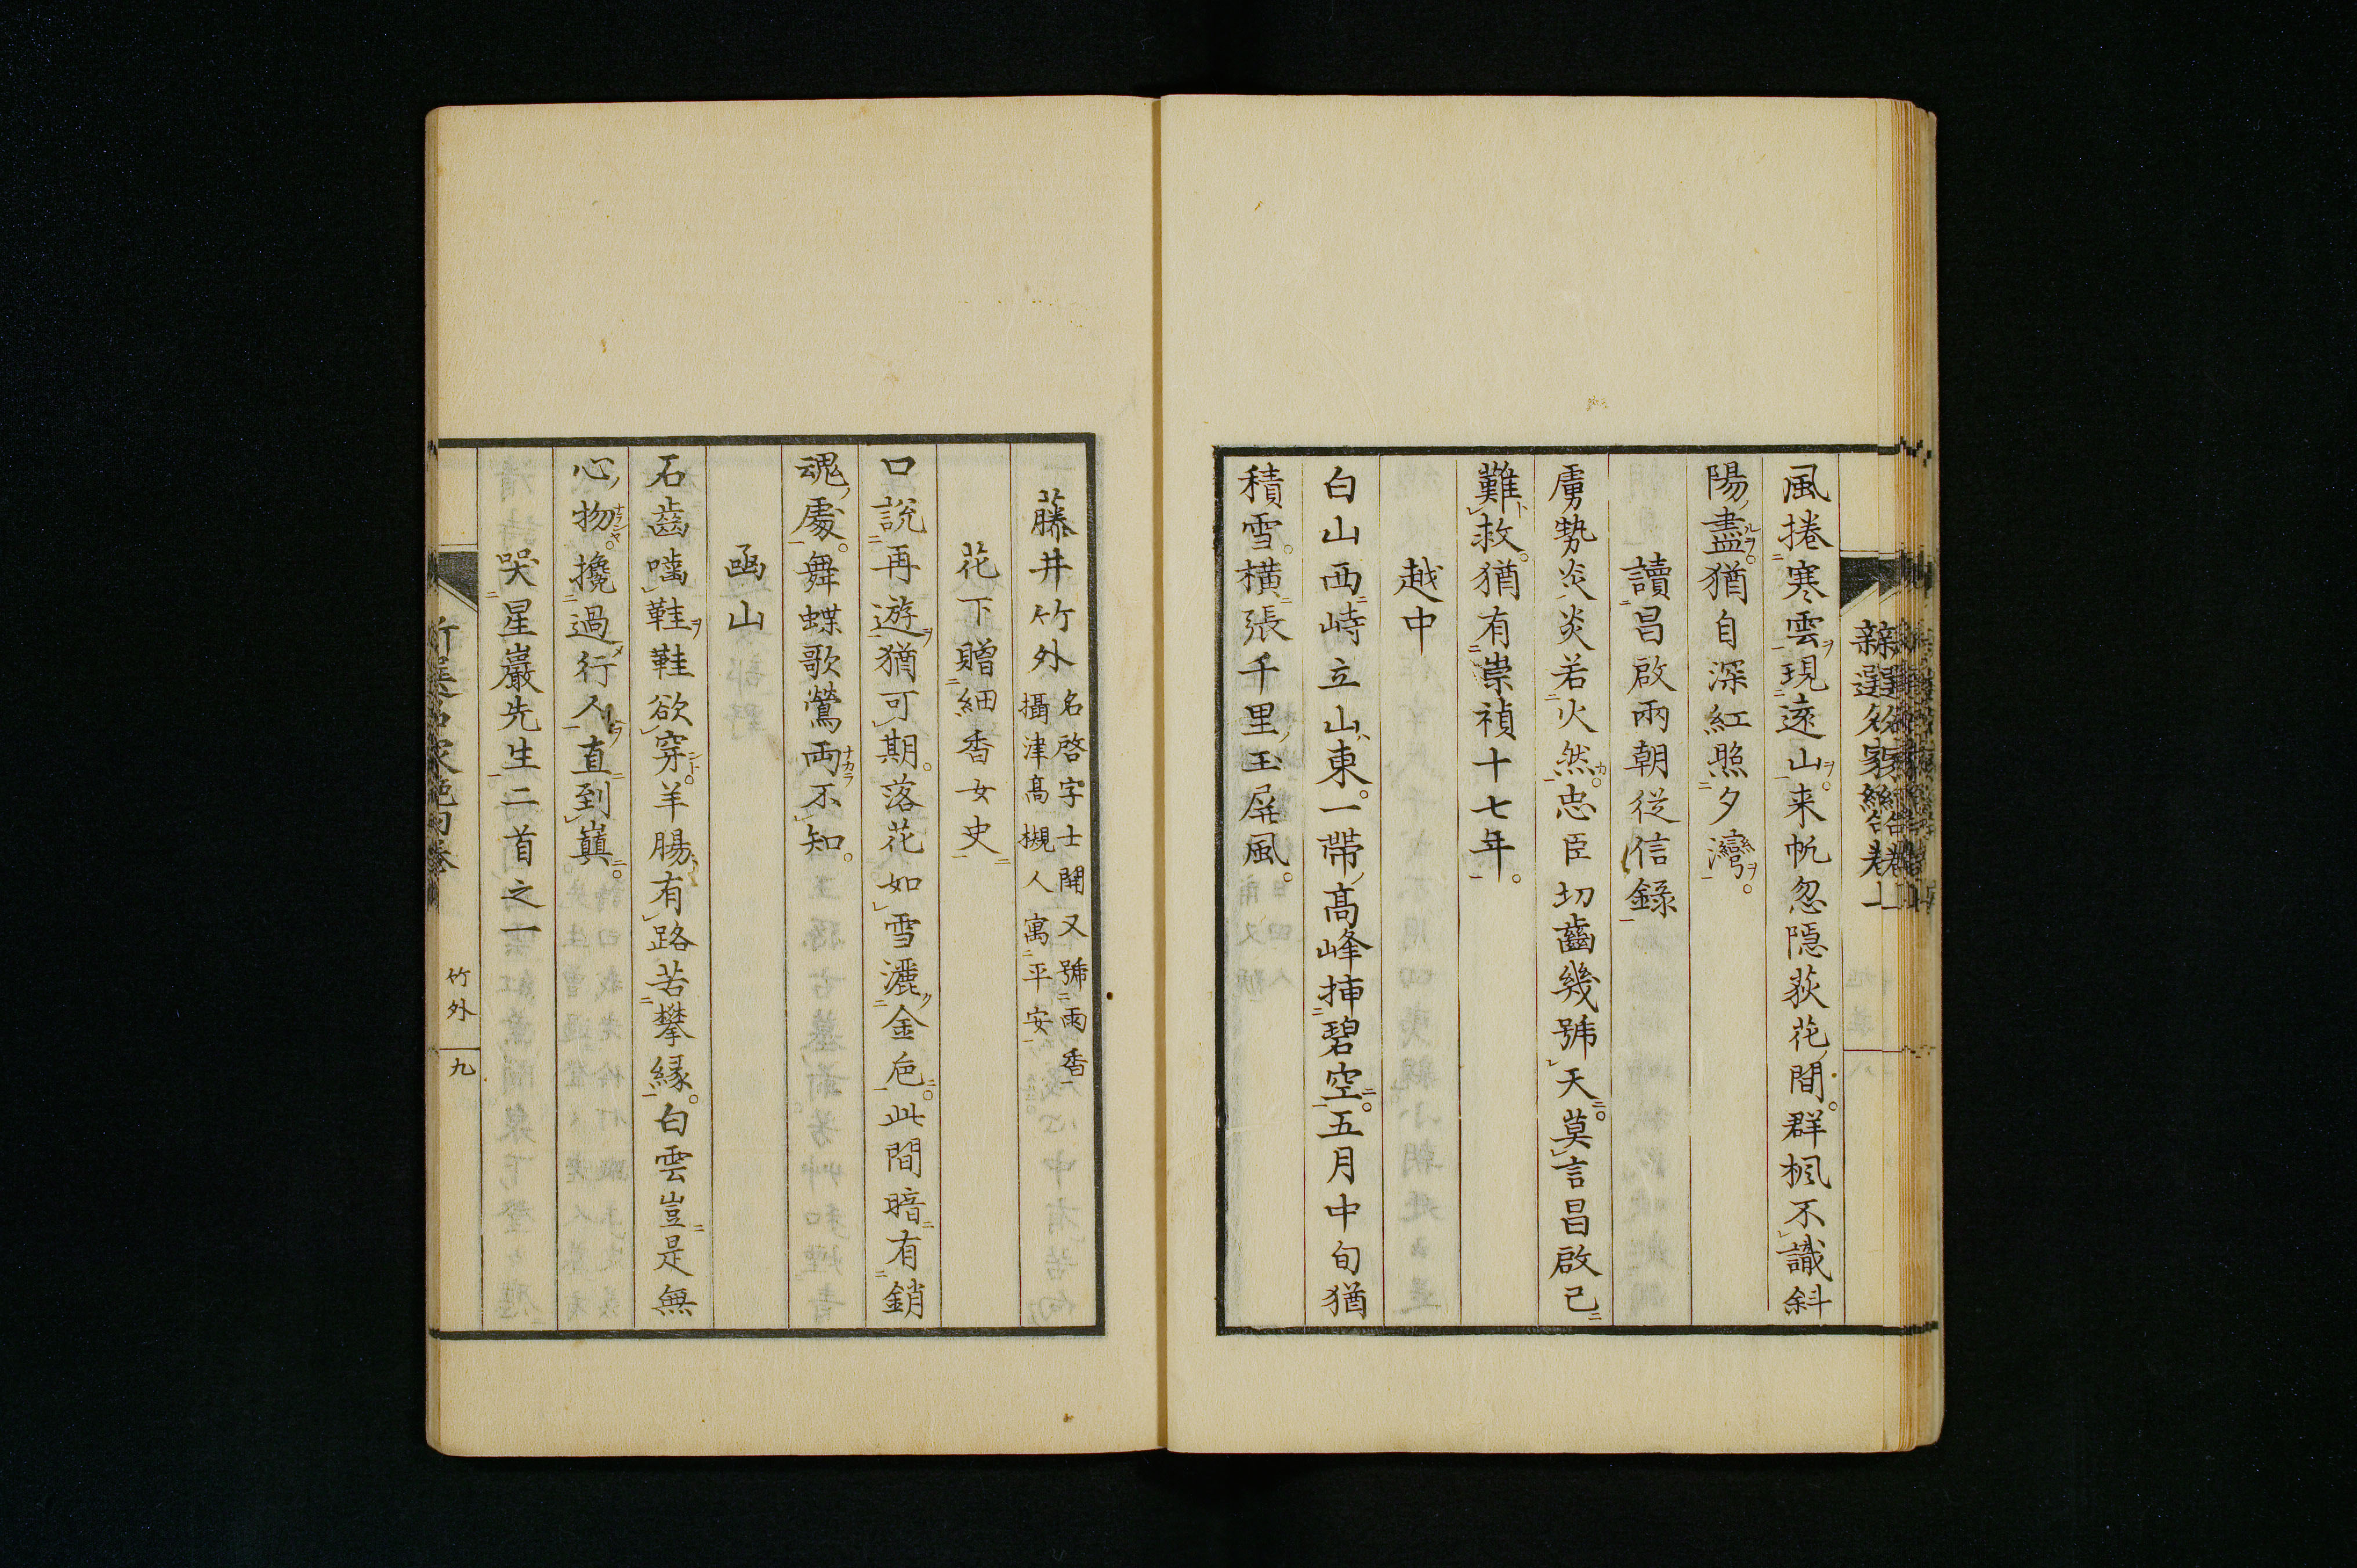 風捲寒雲現遠山。来帆忽隠荻花間。群楓不識斜
陽盡。猶自深紅照夕灣。
讀昌啟兩朝従信録
虜勢炎炎若火然。忠臣切齒幾號天。莫言昌啟已
難救。猶有崇禎十七年。
越中
白山西峙立山東。一帶高峰挿碧空。五月中旬猶
積雪。横張千里玉屏風。
藤井竹外
名啓字士開又號雨香
攝津髙槻人寓平安
花下贈細香女史
口說再遊猶可期。落花如雪灑金巵。此間暗有銷
魂處。舞蝶歌鶯両不知。
函山
石齒嚙鞋鞋欲穿。羊腸有路苦攀縁。白雲豈是無
心物。攙過行人直到巓。
哭星巖先生二首之一
竹外
九